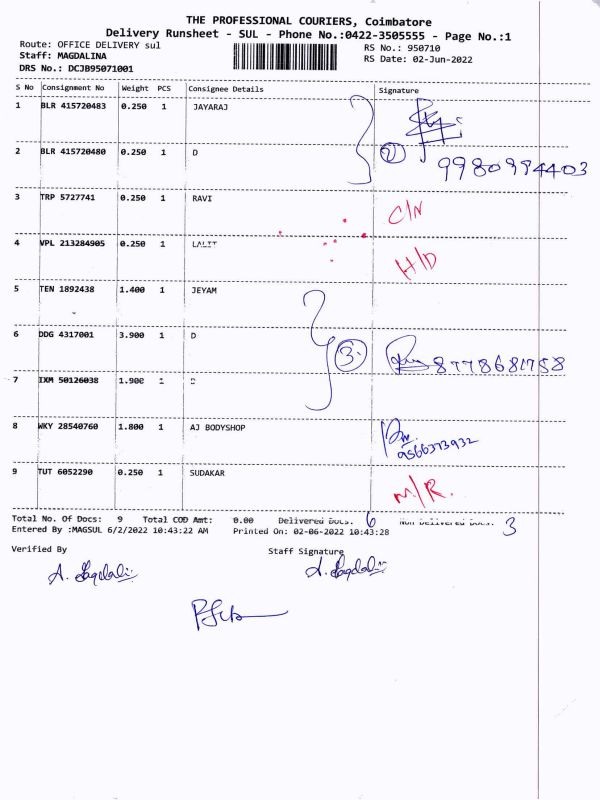 THE PROFESSIONAL COURIERS, Coimbatore
Delivery Runsheet - SUL - Phone No.:0422-3505555 - Page No.:1
Route: OFFICE DELIVERY sul
RS No.: 950710
Staff: MAGDALINA
RS Date: 02-Jun-2022
DRS No.: DCJB95071001
S No Consignment No Weight PCS Consignee Details Signature
1 BLR 415720483 0.250 1 JAYARAJ
2 BLR 415720480 0.250 1 D 2 9980994403
3 TRP 5727741 0.250 1 RAVI C/N
4 VPL 213284905 0.250 1 LALIT H/D
5 TEN 1892438 1.400 1 JEYAM
6 DDG 4317001 3.900 1 D 3. 8778681758
7 IXM 50126038 1.900 1 D
8 WKY 28540760 1.800 1 AJ BODYSHOP 9566373932
9 TUT 6052290 0.250 1 SUDAKAR M/R.
Total No. Of Docs: 9 Total COD Amt: 0.00 Delivered Docs. 6 Non Delivered Docs. 3
Entered By :MAGSUL 6/2/2022 10:43:22 AM Printed On: 02-06-2022 10:43:28
Verified By Staff Signature